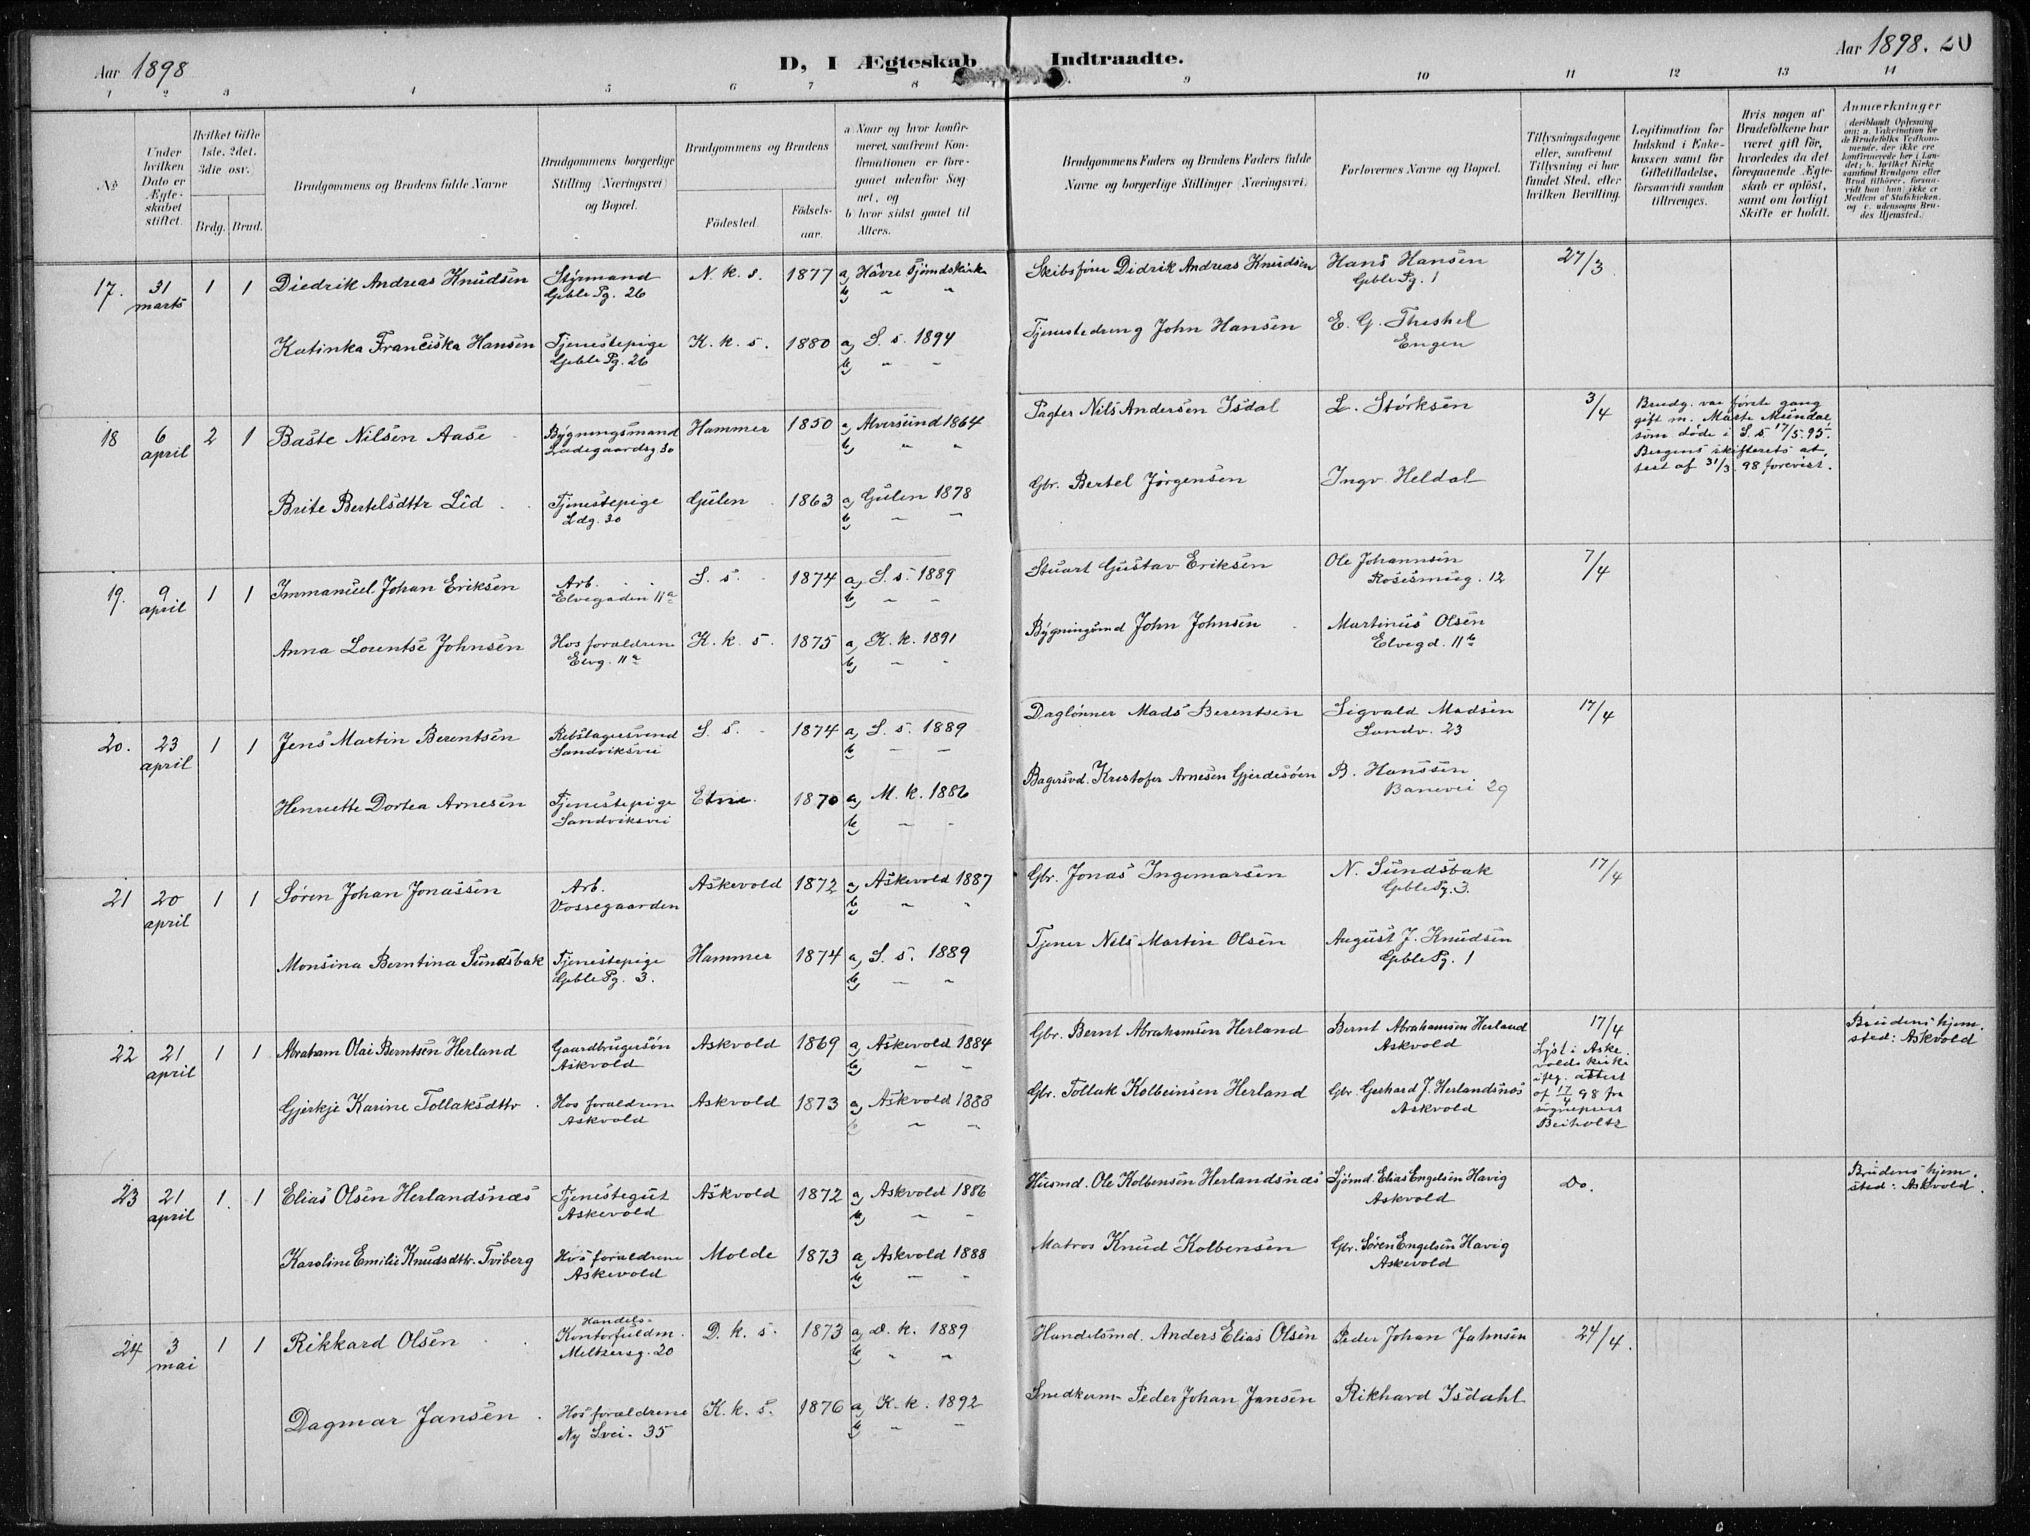 Aar 1898
D, I Ægteskab Indtraadte.
Aar 1898. 20
1 2 3 4 5 6 7 8 9 10 11 12 13 14
No
Under hvilken Dato er Ægteskabet stiftet.
Hvilket Gifte 1ste, 2det, 3die osv.
Brdg. Brud.
Brudgommens og Brudens fulde Navne
Brudgommens borgerlige Stilling (Næringsvei) og Bopæl.
Brudgommens og Brudens
Födested.
Födsels-aar.
a) Naar og hvor konfirmeret, saafremt Konfirmationen er foregaaet udenfor Sognet, og
b) hvor sidst gaaet til Alters.
Brudgommens Faders og Brudens Faders fulde Navne og borgerlige Stillinger (Næringsvei)
Forlovernes Navne og Bopæl.
Tillysningsdagene eller, saafremt Tillysning ei har fundet Sted, efter hvilken Bevilling.
Legitimation for Indskud i Enkekassen samt for Giftetilladelse, forsaavidt saadan tiltrænges.
Hvis nogen af Brudefolkene har været gift før, hvorledes da det foregaaende Ægteskab er opløst, samt om lovligt Skifte er holdt.
Anmærkninger
17. 31 marts 1 1 Diedrik Andreas Knudsen
Styrmand Gble Pg. 26
N. k. s. 1877 a) Håvre Sjömdskirke b) " "
Skibsfører Didrik Andreas Knudsen
Hans Hansen Gble Pg. 1
27/3
Katinka Franciska Hansen
Tjenestepige Gble Pg. 26
K. k. s. 1880 a) S. s. 1894 b) " "
Tjenestedreng John Hansen
E. G. Engen
18 6 april 2 1 Baste Nilsen Aase
Bygningsmand Ladegaardsg. 30
Hammer 1850 a) Alversund 1864 b) " "
Pagter Nils Andersen Isdal
L. Størksen
3/4
Brudg. var første gang gift m. Marte Mundal, som døde i S. s. 17/5 95. Bergens skifterets attest af 31/3 98 forevist.
Brite Bertelsdttr Lid
Tjenestepige Ldg. 30
Gulen 1863 a) Gulen 1878 b) " "
Gbr. Bertel Jørgensen
Ingv. Heldal
19. 9 april 1 1 Immanuel Johan Eriksen
Arb. Elvegaden 11a
S. s. 1874 a) S. s. 1889 b) " "
Stuart Gustav Eriksen
Ole Johannsen 12
7/4
Anna Lorentse Johnsen
Hos forældrene Elvg. 11a
K. k. s. 1875 a) K. k. 1891 b) " "
Bygningsmd John Johnsen
Martinus Olsen Elvegd. 11b
20. 23 april 1 1 Jens Martin Berentsen
Rebslagersvend Sandviksvei
S. s. 1874 a) S. s. 1889 b) " "
Daglønner Mads Berentsen
Sigvald Madsen Sandv. 23
17/4
Henriette Dortea Arnesen
Tjenestepige Sandviksvei
Etne 1870 a) M. k. 1886 b) " "
Bagersvd. Kristofer Arnesen Gjerdesöen
B. Hanssen Banevei 29
21 20 april 1 1 Søren Johan Jonassen
Arb. Vossegaarden
Askevold 1872 a) Askevold 1887 b) " "
Gbr. Jonas Ingemarsen
N. Sundsbak Gble Pg. 3.
17/4
Monsina Berntina Sundsbak
Tjenestepige Gble Pg. 3.
Hammer 1874 a) S. s. 1889 b) " "
Tjener Nils Martin Olsen
August J. Knudsen Gble Pg. 1
22 21 april 1 1 Abraham Olai Berntsen Herland
Gaardbrugersøn Askvold
Askvold 1869 a) Askevold 1884 b) " "
Gbr. Bernt Abrahamsen Herland
Bernt Abrahamsen Herland Askvold
17/4 Lyst i Askevolds kirke iflg. attest af 17/4 98 fra sognepræst Beiholtz
Brudens hjemsted: Askvold
Gjerkje Karine Tollaksdttr
Hos forældrene Askvold
Askvold 1873 a) Askvold 1888 b) " "
Gbr. Tollak Kolbeinsen Herland
Gbr. Gerhard J. Herlandsnæs Askvold
23 21 april 1. 1 Elias Olsen Herlandsnæs
Tjenestegut Askevold
Askvold 1872 a) Askvold 1886 b) " "
Husmd. Ole Kolbensen Herlandsnæs
Sjömd. Elias Engelsen Havig Askvold
Do.
Brudens hjemsted: Askvold.
Karoline Emilie Knudsdttr. Tviberg
Hos forældrene Askevold
Molde 1873 a) Askvold 1888 b) " "
Matros Knud Kolbensen
Gbr. Søren Engelsen Havig Askevold
24 3 mai 1 1 Rikkard Olsen
Handels-Kontorfuldm. Meltzersg. 20
D. k. s. 1873 a) D. k. 1889 b) " "
Handelsmd. Anders Elias Olsen
Peder Johan Jahnsen
24/4.
Dagmar Jansen
Hos forældrene Ny Svei. 35
K. k. s. 1876 a) K. k. 1892 b) " "
Snedkerm Peder Johan Jansen
Rikhard Isdahl